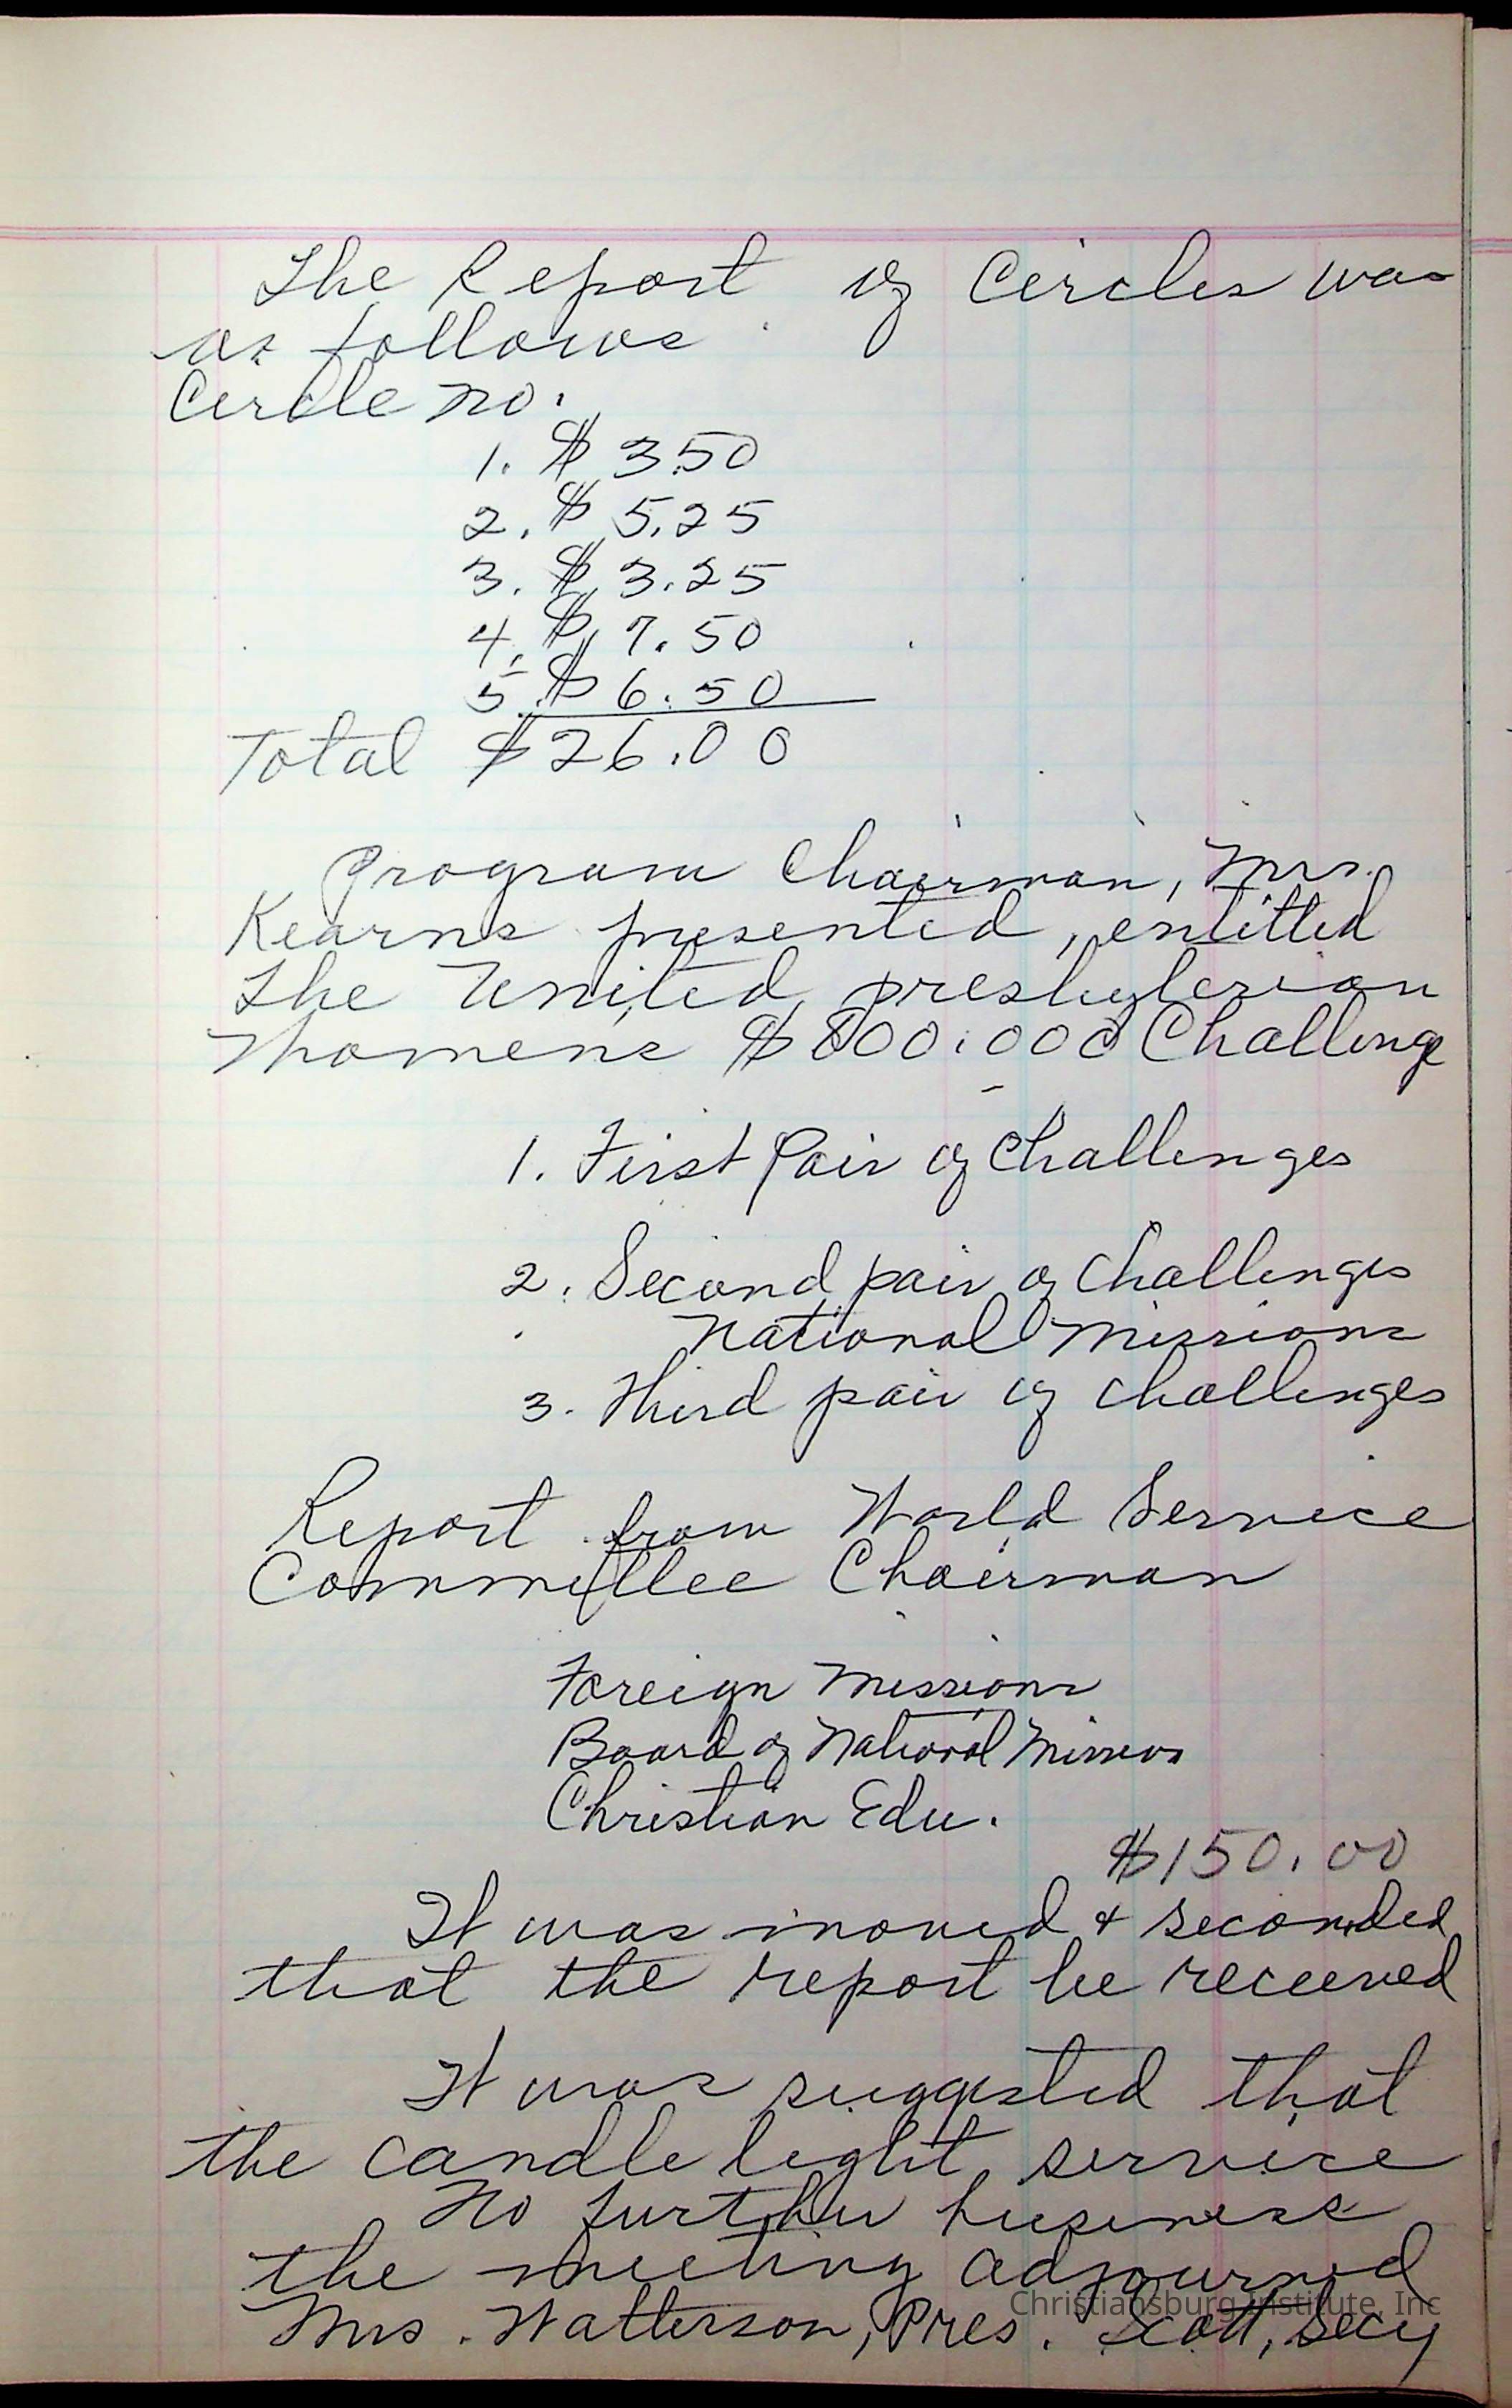 The Report of Circles was
as follows
Circle no.
1. $ 3.50
2. $ 5.25
3. $ 3.25
4. $ 7.50
5. $ 6.50
Total $26.00
Program Chairman, Mrs.
Kearns presented, entitled
The United presbyterian
Women's $800.000 Challenge
1. First Pair of Challenges
2. Second pair of Challenges
National Missions
3. Third pair of challenges
Report from World Service
Committee Chairman
Foreign Missions
Board of National Missions
Christian Edu.
$150.00
It was moved & seconded
that the report be received
It was suggested that
the candle light service
No further business
the meeting adjourned
Mrs. Watterson, Pres. Scott, Secy
Christiansburg Institute, Inc